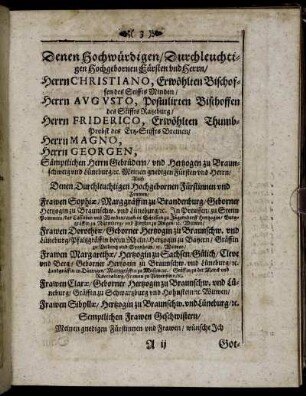 3
Denen Hochwürdigen/ Durchleuchti-
gen Hochgebornen Fürsten vnd Herrn/
Herrn CHRISTIANO, Erwöhlten Bischof-
fen des Stiffts Minden/
Herrn AVGVSTO, Postulirten Bischoffen
des Stiffts Ratzeburg/
Herrn FRIDERICO, Erwöhlten Thumb-
Probst des Ertz-Stiffts Bremen/
Herrn MAGNO,
Herrn GEORGEN,
Sämptlichen Herrn Gebrüdern/ vnd Hertzogen zu Braun-
schweig vnd Lüneburg/ etc. Meinen gnedigen Fürsten vnd Herrn/
Auch
Denen Durchleuchtigen Hochgebornen Fürstinnen vnd
Frawen Sophiæ/ Marggräffin zu Brandenburg/ Geborner
Hertzogin zu Braunschw. vnd Lüneburg/ etc. In Preussen/ zu Stettin
Pommern/ der Cassuben vnd Wenden
Frawen Dorotheæ/ Geborner Hertzogin zu Braunschw. vnd
Lüneburg/ Pfaltzgräffin beym Rhein/ Hertzogin zu Bayern/ Gräffin
zu Veldentz vnd Sponheim/ etc. Witwen/
Frawen Margarethæ/ Hertzogin zu Sachsen/ Gülich/ Cleve
und Berg/ Geborner Hertzogin zu Braunschw. vnd Lüneburg/ etc.
Landgräffin in Düringen/ Marggräffin zu Meissen/ etc. Gräffin zu der Marck vnd
Ravensburg/ Frawen zu Ravenstein/ etc.
Frawen Claræ/ Geborner Hertzogin zu Braunschw. vnd Lü-
neburg/ Gräffin zu Schwartzburg vnd Hohnstein/ etc. Witwen/
Frawen Sibyllæ/ Hertzogin zu Braunschw. vnd Lüneburg/ etc.
Semptlichen Frawen Geschwistern/
Meinen gnedigen Fürstinnen vnd Frawen/ wünsche Ich
A ij Got-